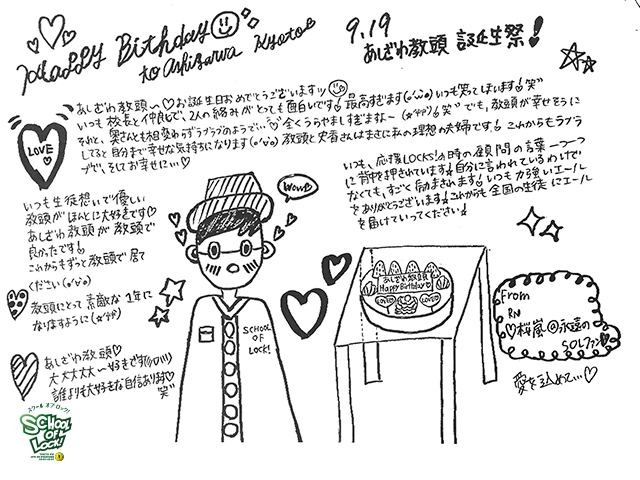 Happy Birthday
to Ashizawa Kyoto
9.19
あしざわ教頭 誕生祭!
あしざわ教頭〜♡お誕生日おめでとうございますッ
いつも校長と仲良しで、2人の絡みがとっても面白いです!最高すぎます(o'ω'o)いつも笑ってしまいます!笑"
それと、奥さんとも相変わらずラブラブのようで…♡全くうらやましすぎますねー(☆艸)!笑"でも、教頭が幸せそうに
してると自分まで幸せな気持ちになります(o'ω'o)教頭と奥さんはまさに私の理想の夫婦です!これからもラブラ
ブで、そしてお幸せに…♡
LOVE
いつも生徒想いで優しい
教頭がほんとに大好きです♡
あしざわ教頭が教頭で
良かったです!
これからもずっと教頭で居て
ください(o'ω'o)
教頭にとって素敵な1年に
なりますように(☆艸)
あしざわ教頭♡
大大大大〜好きです
誰よりも大好きな自信あります♡
笑"
いつも、応援LOCKS!の時の顧問の言葉一つ一つ
に背中を押されています!自分に言われているわけで
なくても、すごく励まされます!いつも力強いエール
をありがとうございます!これからも全国の生徒にエール
を届けていってください!
WOW♡
SCHOOL
OF
LOCK!
あしざわ教頭
Happy Birthday♡
LOVE
From
RN
♡桜嵐@永遠の
SOLファン♡
愛を込めて…♡
スクール オブ ロック!
SCHOOL
OF
LOCK!